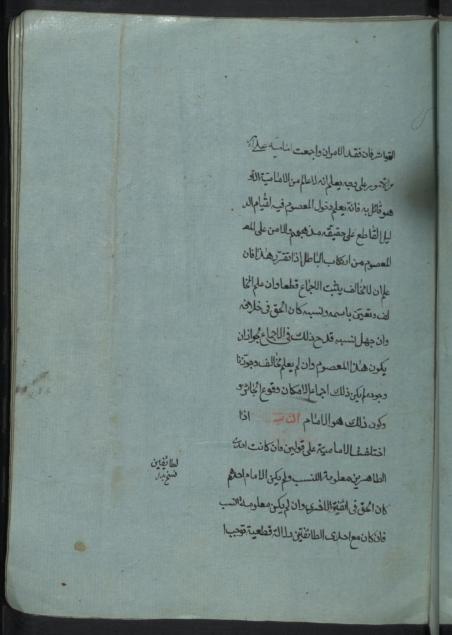 القرائن فان فقد الامران واجمعت امامية على
امر من الامور على وجه يعلم انه لا عالم من الامامية الا و
هو قائل به فانه يعلم دخول المعصوم فيه لقيام الد
ليل القاطع على حقيقة مذهبهم والامن على المعـ
المعصوم من ارتكاب الباطل اذا تقرر هذا فان
علم ان لا مخالف يثبت الاجماع قطعا وان علم المخا
لف وتعين باسمه ونسبه كان الحق في خلافه
وان جهل نسبه قدح ذلك في الاجماع لجواز ان
يكون هذا المعصوم وان لم يعلم مخالف وجوزنا
وجوده لم يكن ذلك اجماعا لامكان وقوع الجائز و
كون ذلك هو الامام اذا
اختلفت الامامية على قولين فان كانت احدى
الطائفتين معلومة النسب ولم يكن الامام احدهم
كان الحق في الفئة الاخرى وان لم يكن معلومة النسب
فان كان مع احدى الطائفتين دلالة قطعية توجب ا
لطائفتين